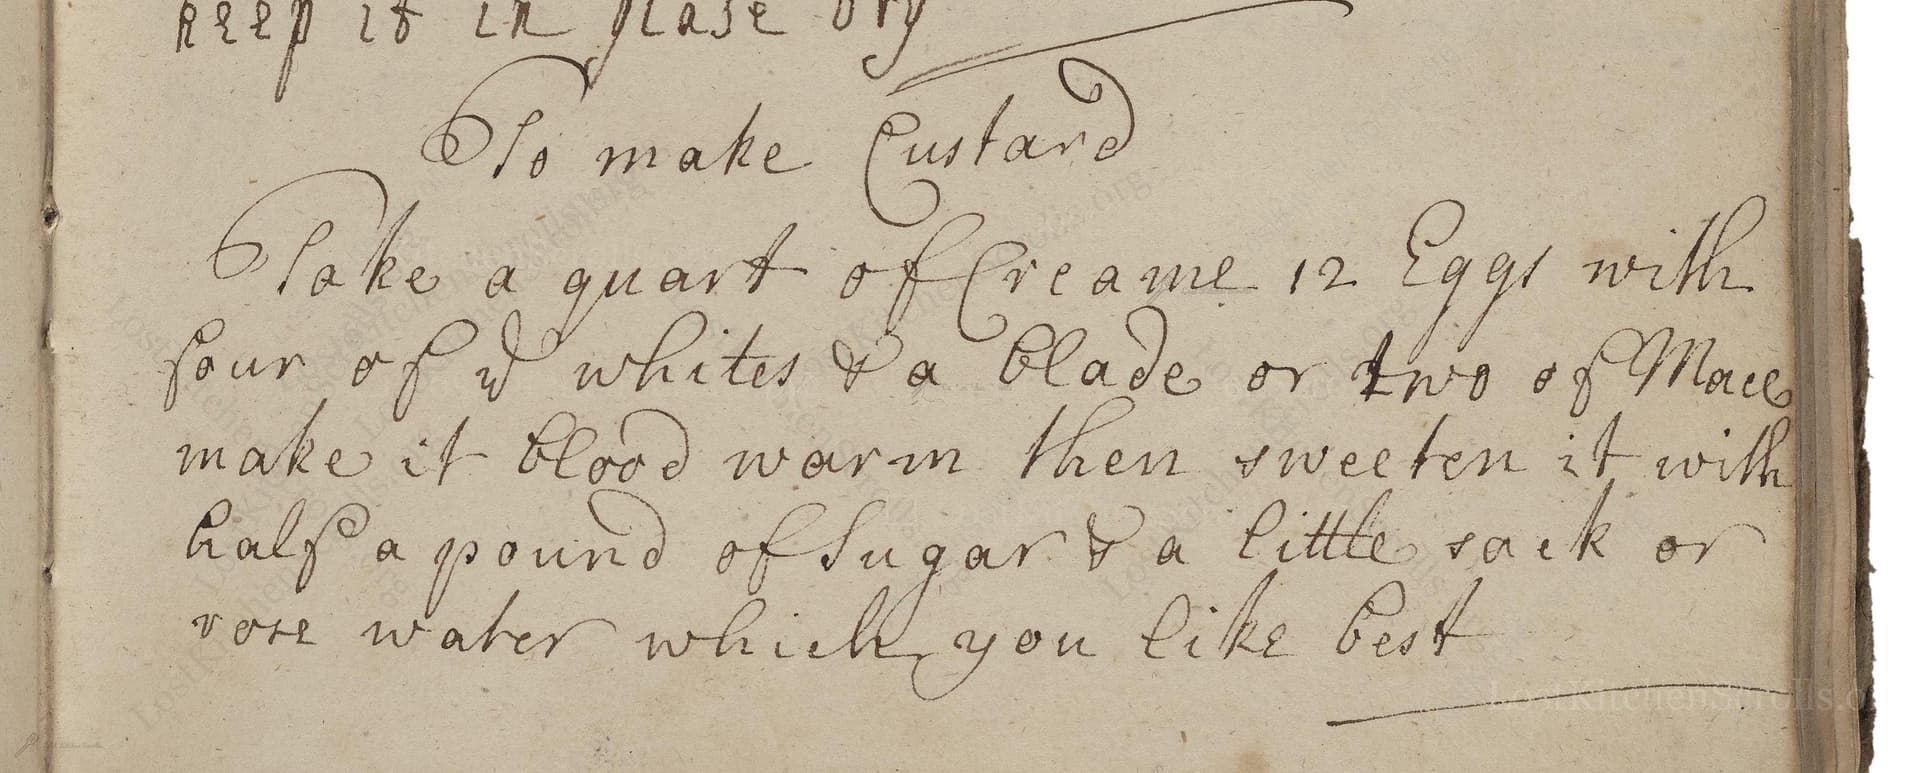 keep it in plase dry
To make Custard
Take a quart of Creame 12 Eggs with
four of ye whites & a blade or two of Mace
make it blood warm then sweeten it with
half a pound of Sugar & a little sack or
rose water which you like best
LostKitchenScrolls.org